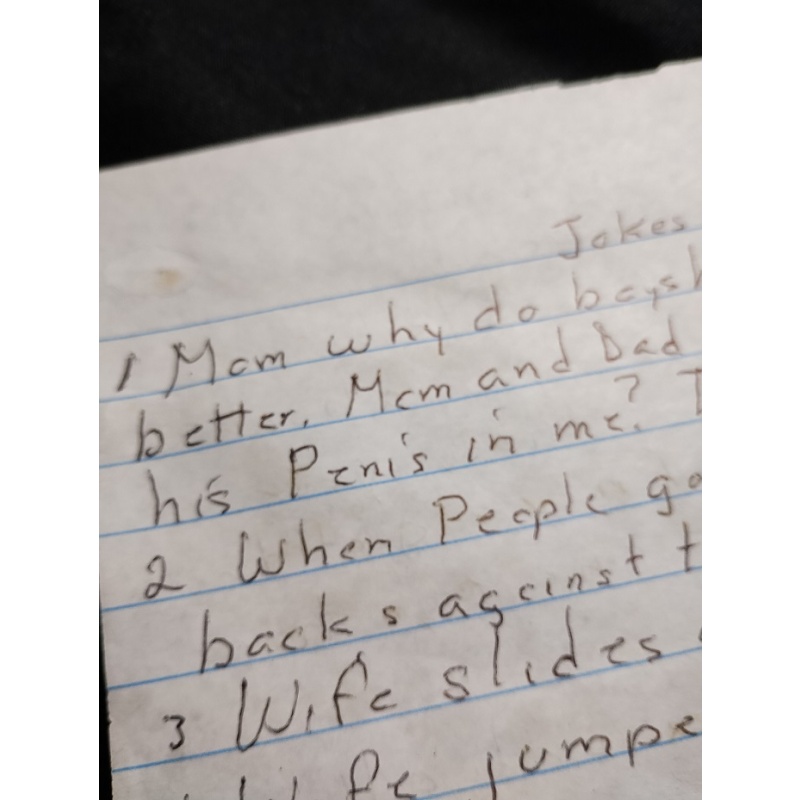 Jokes
1 Mom why do boys
better. Mom and Dad
his Penis in me?
2 When People go
backs against
3 Wife slides
Wife jumpe